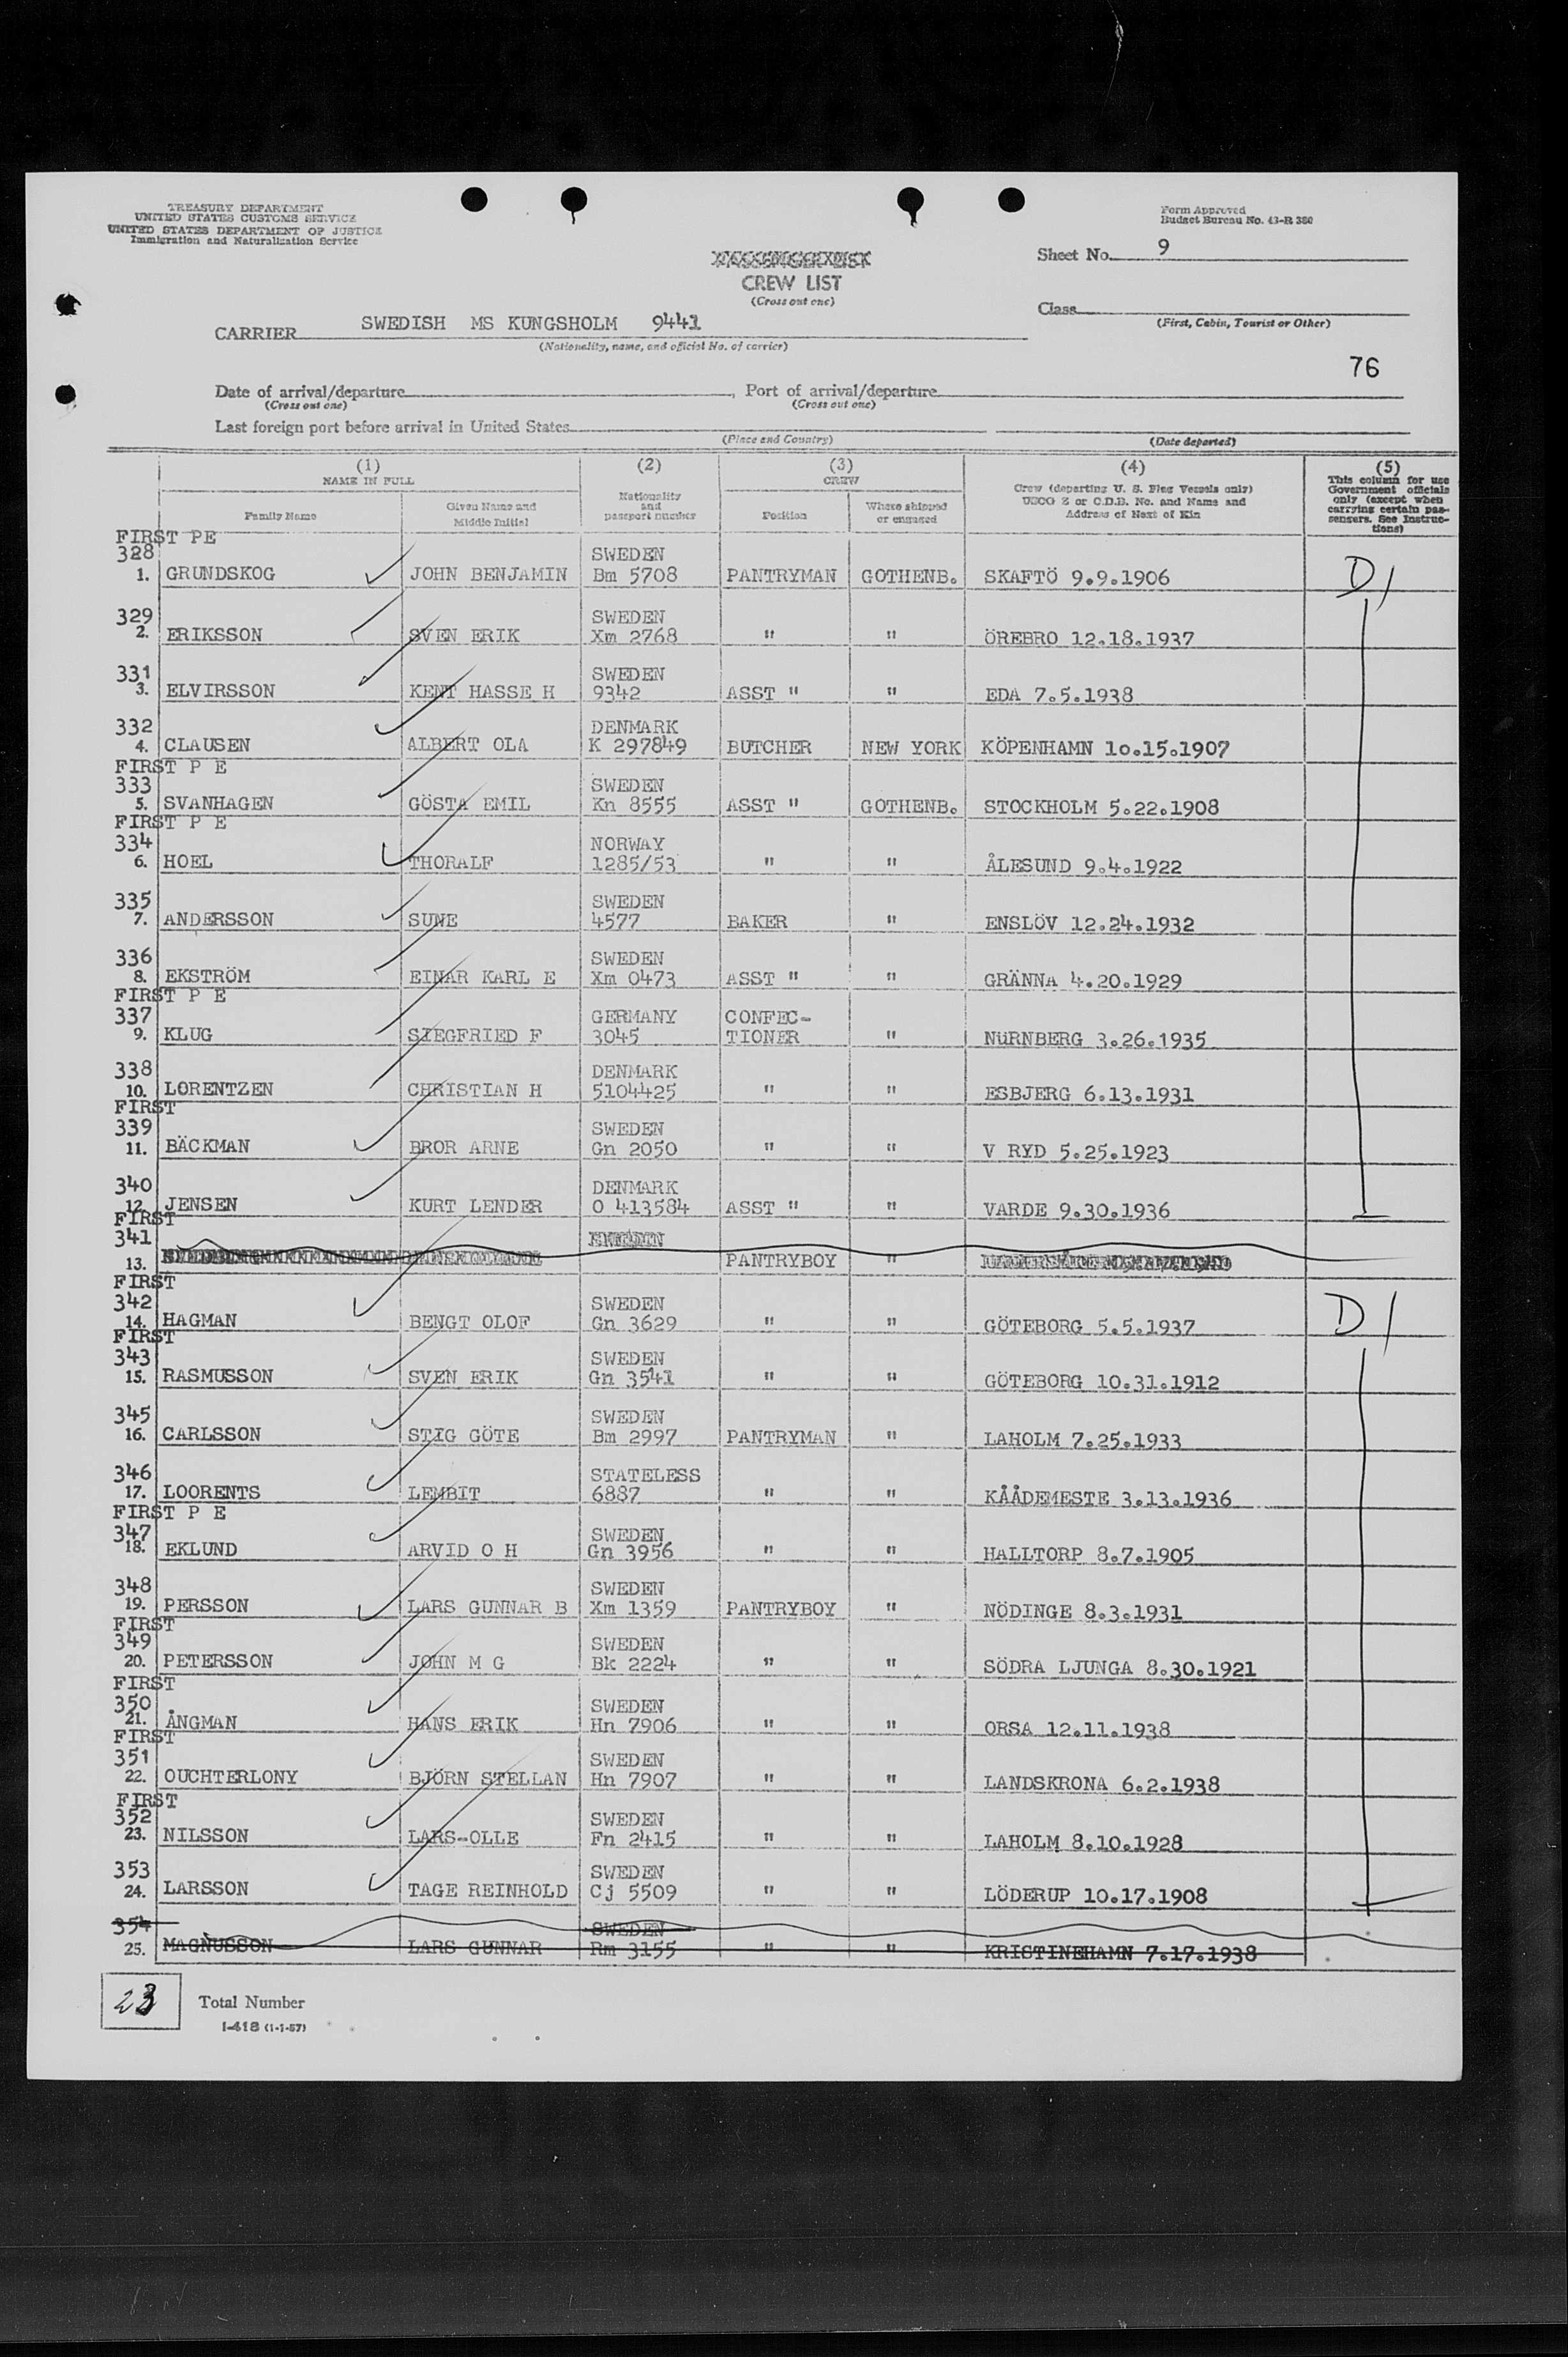 TREASURY DEPARTMENT
UNITED STATES CUSTOMS SERVICE
UNITED STATES DEPARTMENT OF JUSTICE
Immigration and Naturalization Service
Form Approved
Budget Bureau No. 43-R 380
Sheet No. 9
CREW LIST
(Cross out one)
Class
(First, Cabin, Tourist or Other)
CARRIER SWEDISH MS KUNGSHOLM 9441
(Nationality, name, and official No. of carrier)
76
Date of arrival/departure , Port of arrival/departure
(Cross out one) (Cross out one)
Last foreign port before arrival in United States
(Place and Country) (Date departed)
(1) (2) (3) (4) (5)
NAME IN FULL CREW
Family Name Given Name and Middle Initial Nationality and passport number Position Where shipped or engaged Crew (departing U. S. Flag Vessels only) USCG Z or C.D.B. No. and Name and Address of Next of Kin This column for use Government officials only (except when carrying certain passengers. See Instructions)
FIRST PE
328 SWEDEN
1. GRUNDSKOG JOHN BENJAMIN Bm 5708 PANTRYMAN GOTHENB. SKAFTÖ 9.9.1906 D1
329 SWEDEN
2. ERIKSSON SVEN ERIK Xm 2768 " " ÖREBRO 12.18.1937
331 SWEDEN
3. ELVIRSSON KENT HASSE H 9342 ASST " " EDA 7.5.1938
332 DENMARK
4. CLAUSEN ALBERT OLA K 297849 BUTCHER NEW YORK KÖPENHAMN 10.15.1907
FIRST P E
333 SWEDEN
5. SVANHAGEN GÖSTA EMIL Kn 8555 ASST " GOTHENB. STOCKHOLM 5.22.1908
FIRST P E
334 NORWAY
6. HOEL THORALF 1285/53 " " ÅLESUND 9.4.1922
335 SWEDEN
7. ANDERSSON SUNE 4577 BAKER " ENSLÖV 12.24.1932
336 SWEDEN
8. EKSTRÖM EINAR KARL E Xm 0473 ASST " " GRÄNNA 4.20.1929
FIRST P E
337 GERMANY CONFEC-
9. KLUG SIEGFRIED F 3045 TIONER " NüRNBERG 3.26.1935
338 DENMARK
10. LORENTZEN CHRISTIAN H 5104425 " " ESBJERG 6.13.1931
FIRST
339 SWEDEN
11. BÄCKMAN BROR ARNE Gn 2050 " " V RYD 5.25.1923
340 DENMARK
12. JENSEN KURT LENDER O 413584 ASST " " VARDE 9.30.1936
FIRST
341
13. PANTRYBOY "
FIRST
342 SWEDEN
14. HAGMAN BENGT OLOF Gn 3629 " " GÖTEBORG 5.5.1937 D1
FIRST
343 SWEDEN
15. RASMUSSON SVEN ERIK Gn 3541 " " GÖTEBORG 10.31.1912
345 SWEDEN
16. CARLSSON STIG GÖTE Bm 2997 PANTRYMAN " LAHOLM 7.25.1933
346 STATELESS
17. LOORENTS LEMBIT 6887 " " KÅÅDEMESTE 3.13.1936
FIRST P E
347 SWEDEN
18. EKLUND ARVID O H Gn 3956 " " HALLTORP 8.7.1905
348 SWEDEN
19. PERSSON LARS GUNNAR B Xm 1359 PANTRYBOY " NÖDINGE 8.3.1931
FIRST
349 SWEDEN
20. PETERSSON JOHN M G Bk 2224 " " SÖDRA LJUNGA 8.30.1921
FIRST
350 SWEDEN
21. ÅNGMAN HANS ERIK Hn 7906 " " ORSA 12.11.1938
FIRST
351 SWEDEN
22. OUCHTERLONY BJÖRN STELLAN Hn 7907 " " LANDSKRONA 6.2.1938
FIRST
352 SWEDEN
23. NILSSON LARS-OLLE Fn 2415 " " LAHOLM 8.10.1928
353 SWEDEN
24. LARSSON TAGE REINHOLD Cj 5509 " " LÖDERUP 10.17.1908
354 SWEDEN
25. MAGNUSSON LARS GUNNAR Rm 3155 " " KRISTINEHAMN 7.17.1938
23 Total Number
I-418 (1-1-57)